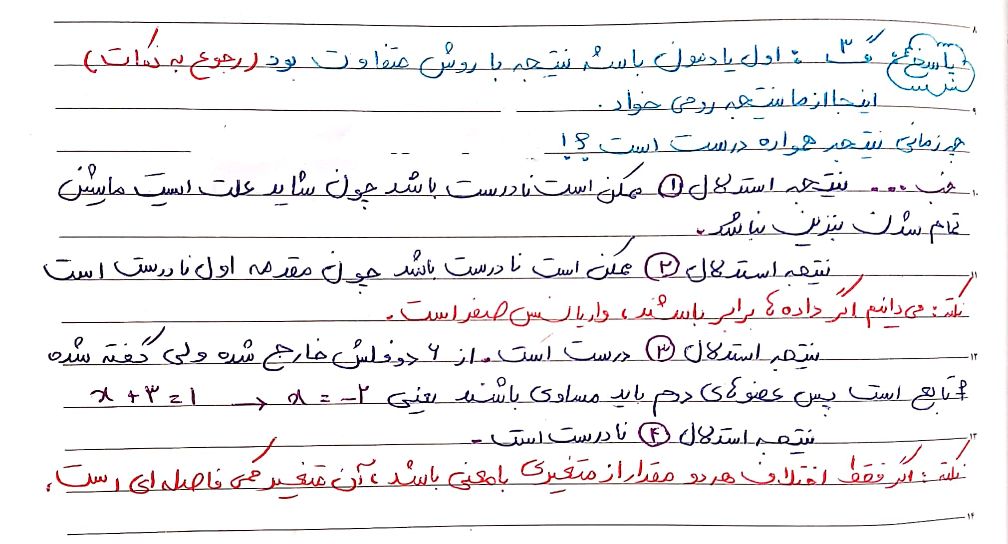 ۸
پاسخ تست گ ۳ : اول یادمون باشه نتیجه با روش متفاوت بود (رجوع به نکات)
۹
اینجا از ما نتیجه رو می خواد.
چه زمانی نتیجه همواره درست است ؟!
۱۰
خب ... نتیجه استدلال ① ممکن است نادرست باشد چون شاید علت ایست ماشین
تمام شدن بنزین نباشد.
۱۱
نتیجه استدلال ② ممکن است نادرست باشد چون مقدمه اول نادرست است
نکته: می دانیم اگر داده ها برابر باشند، واریانس صفر است.
۱۲
نتیجه استدلال ③ درست است. از ۶ دو فلش خارج شده ولی گفته شده
f تابع است پس عضوهای دوم باید مساوی باشند یعنی x + ۳ = ۱ → x = -۲
۱۳
نتیجه استدلال ④ نادرست است.
نکته: اگر فقط اختلاف هر دو مقدار از متغیری بامعنی باشد، آن متغیر کمی فاصله ای است.
۱۴